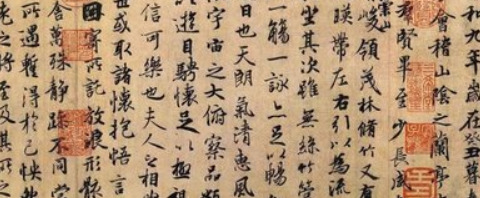 和九年歲在癸丑暮
會稽山陰之蘭亭
羣賢畢至少長咸
崇山
峻領茂林脩竹又有
暎帶左右引以為流
坐其次雖無絲竹管
一觴一詠亦足以暢
日也天朗氣清惠風
宇宙之大俯察品類
遊目騁懷足以極視
信可樂也夫人之相
世或取諸懷抱悟言
因寄所託放浪形骸
舍萬殊靜躁不同當
所遇蹔得於己怏然
老之將至及其所之